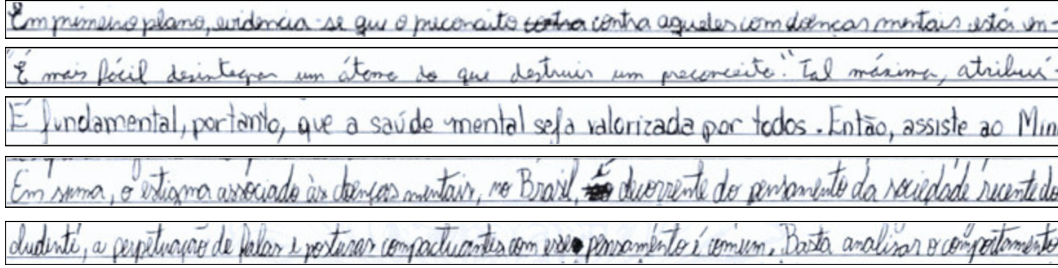 Em primeiro plano, evidencia-se que o preconceito contra aqueles com doenças mentais está en-
"É mais fácil desintegrar um átomo do que destruir um preconceito." Tal máxima, atribuí-
É fundamental, portanto, que a saúde mental seja valorizada por todos. Então, assiste ao Min
Em suma, o estigma associado às doenças mentais, no Brasil, é decorrente do pensamento da sociedade recente do
dudente, a perpetuação de falas e posturas compactuantes com esse pensamento é comum. Basta analisar o comportamento